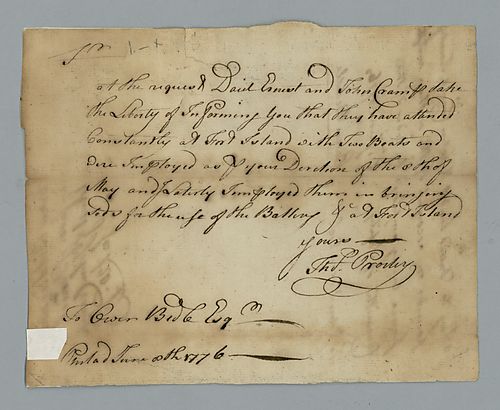 Sr
at the request Dail Ernest and John Cramp take
the Liberty of Informing You that they have attended
Constantly at Fort Island with Two Boats and
were Imployed as pr your Derction of the 8th of
May and Laterly Imployed them in bringing
Sods for the use of the Battery &c at Fort Island
yours
Thos. Procter
To Owen Bidle Esqr
Philad June 8th 1776